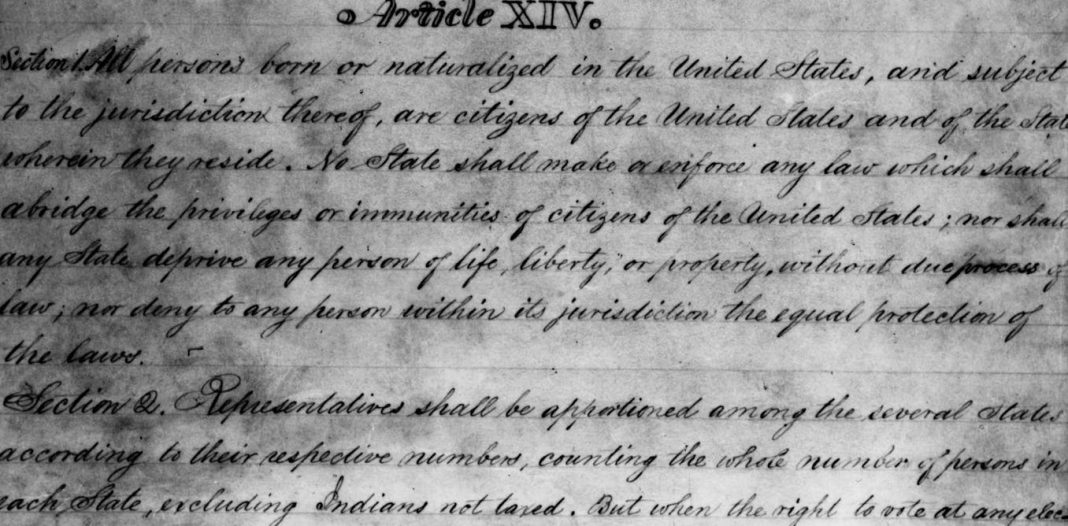 Article XIV.
Section 1. All persons born or naturalized in the United States, and subject
to the jurisdiction thereof, are citizens of the United States and of the State
wherein they reside. No State shall make or enforce any law which shall
abridge the privileges or immunities of citizens of the United States; nor shall
any State deprive any person of life, liberty, or property, without due process of
law; nor deny to any person within its jurisdiction the equal protection of
the laws.
Section 2. Representatives shall be apportioned among the several States
according to their respective numbers, counting the whole number of persons in
each State, excluding Indians not taxed. But when the right to vote at any elec-